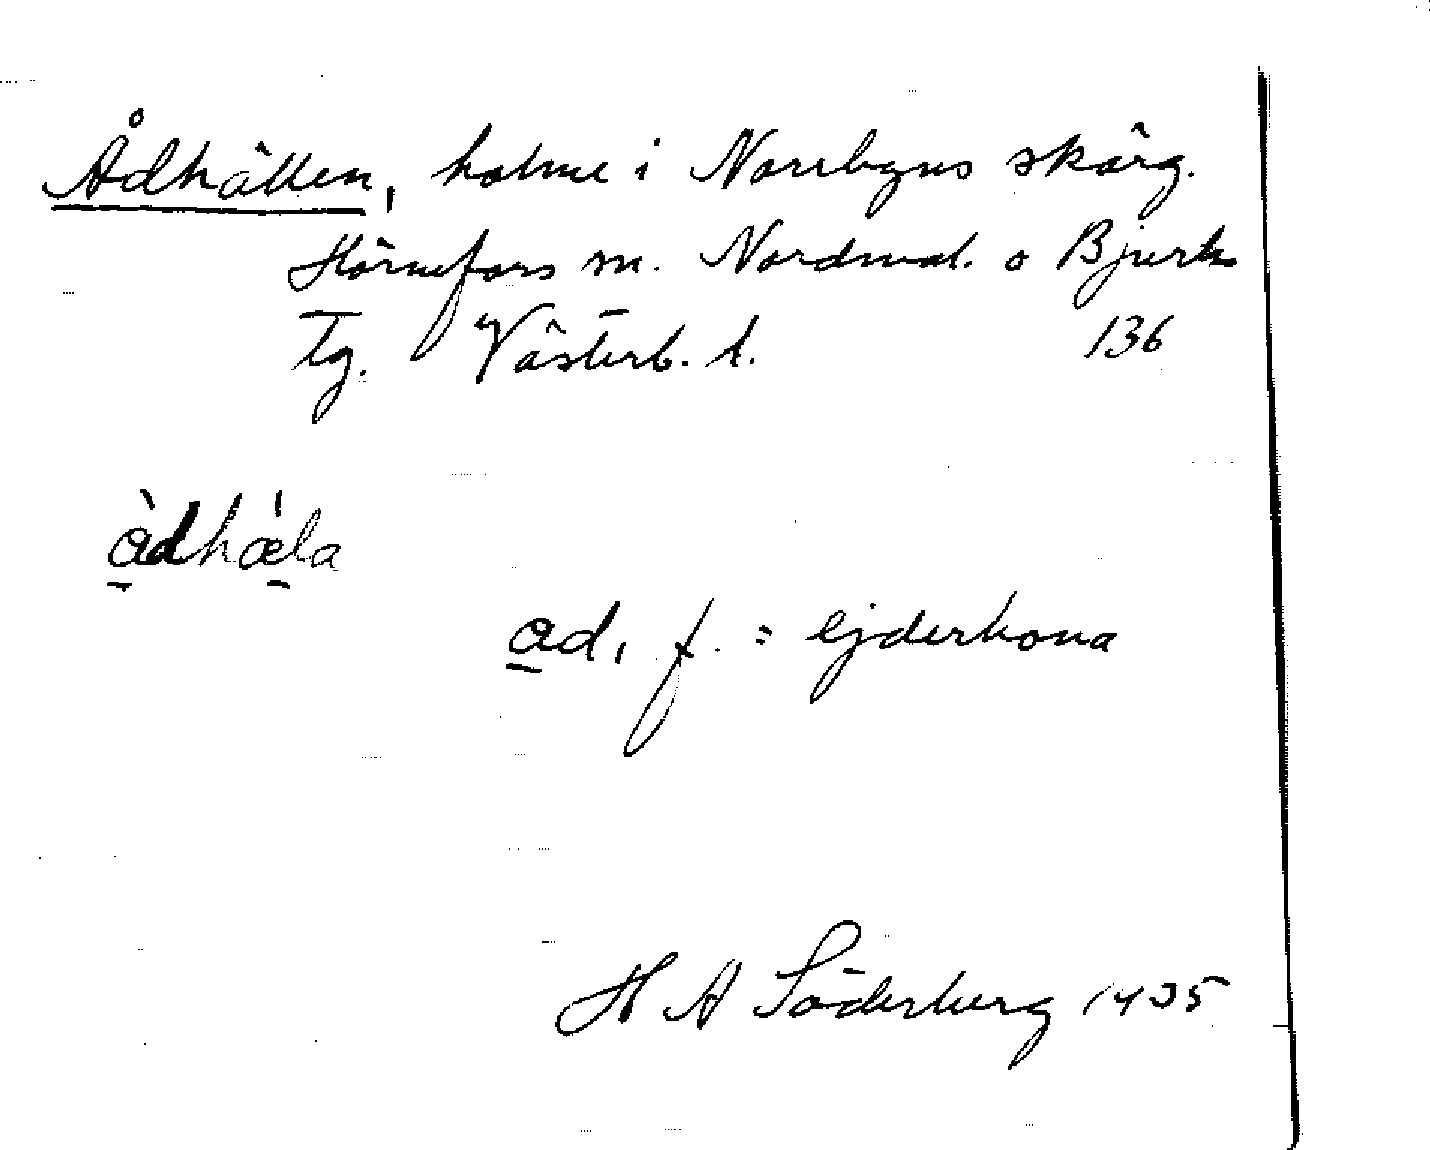 Ådhällen, holme i Norrbyns skärg.
Hörnefors sn. Nordmal. o Bjurh
Tg. Västerb. l. 136
àdhæ̀la
ad, f. = ejderhona
H A Söderberg 1935